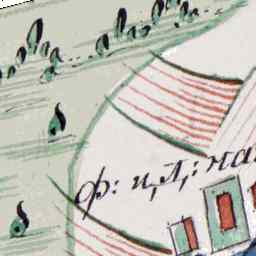 ф: и,Л,: на